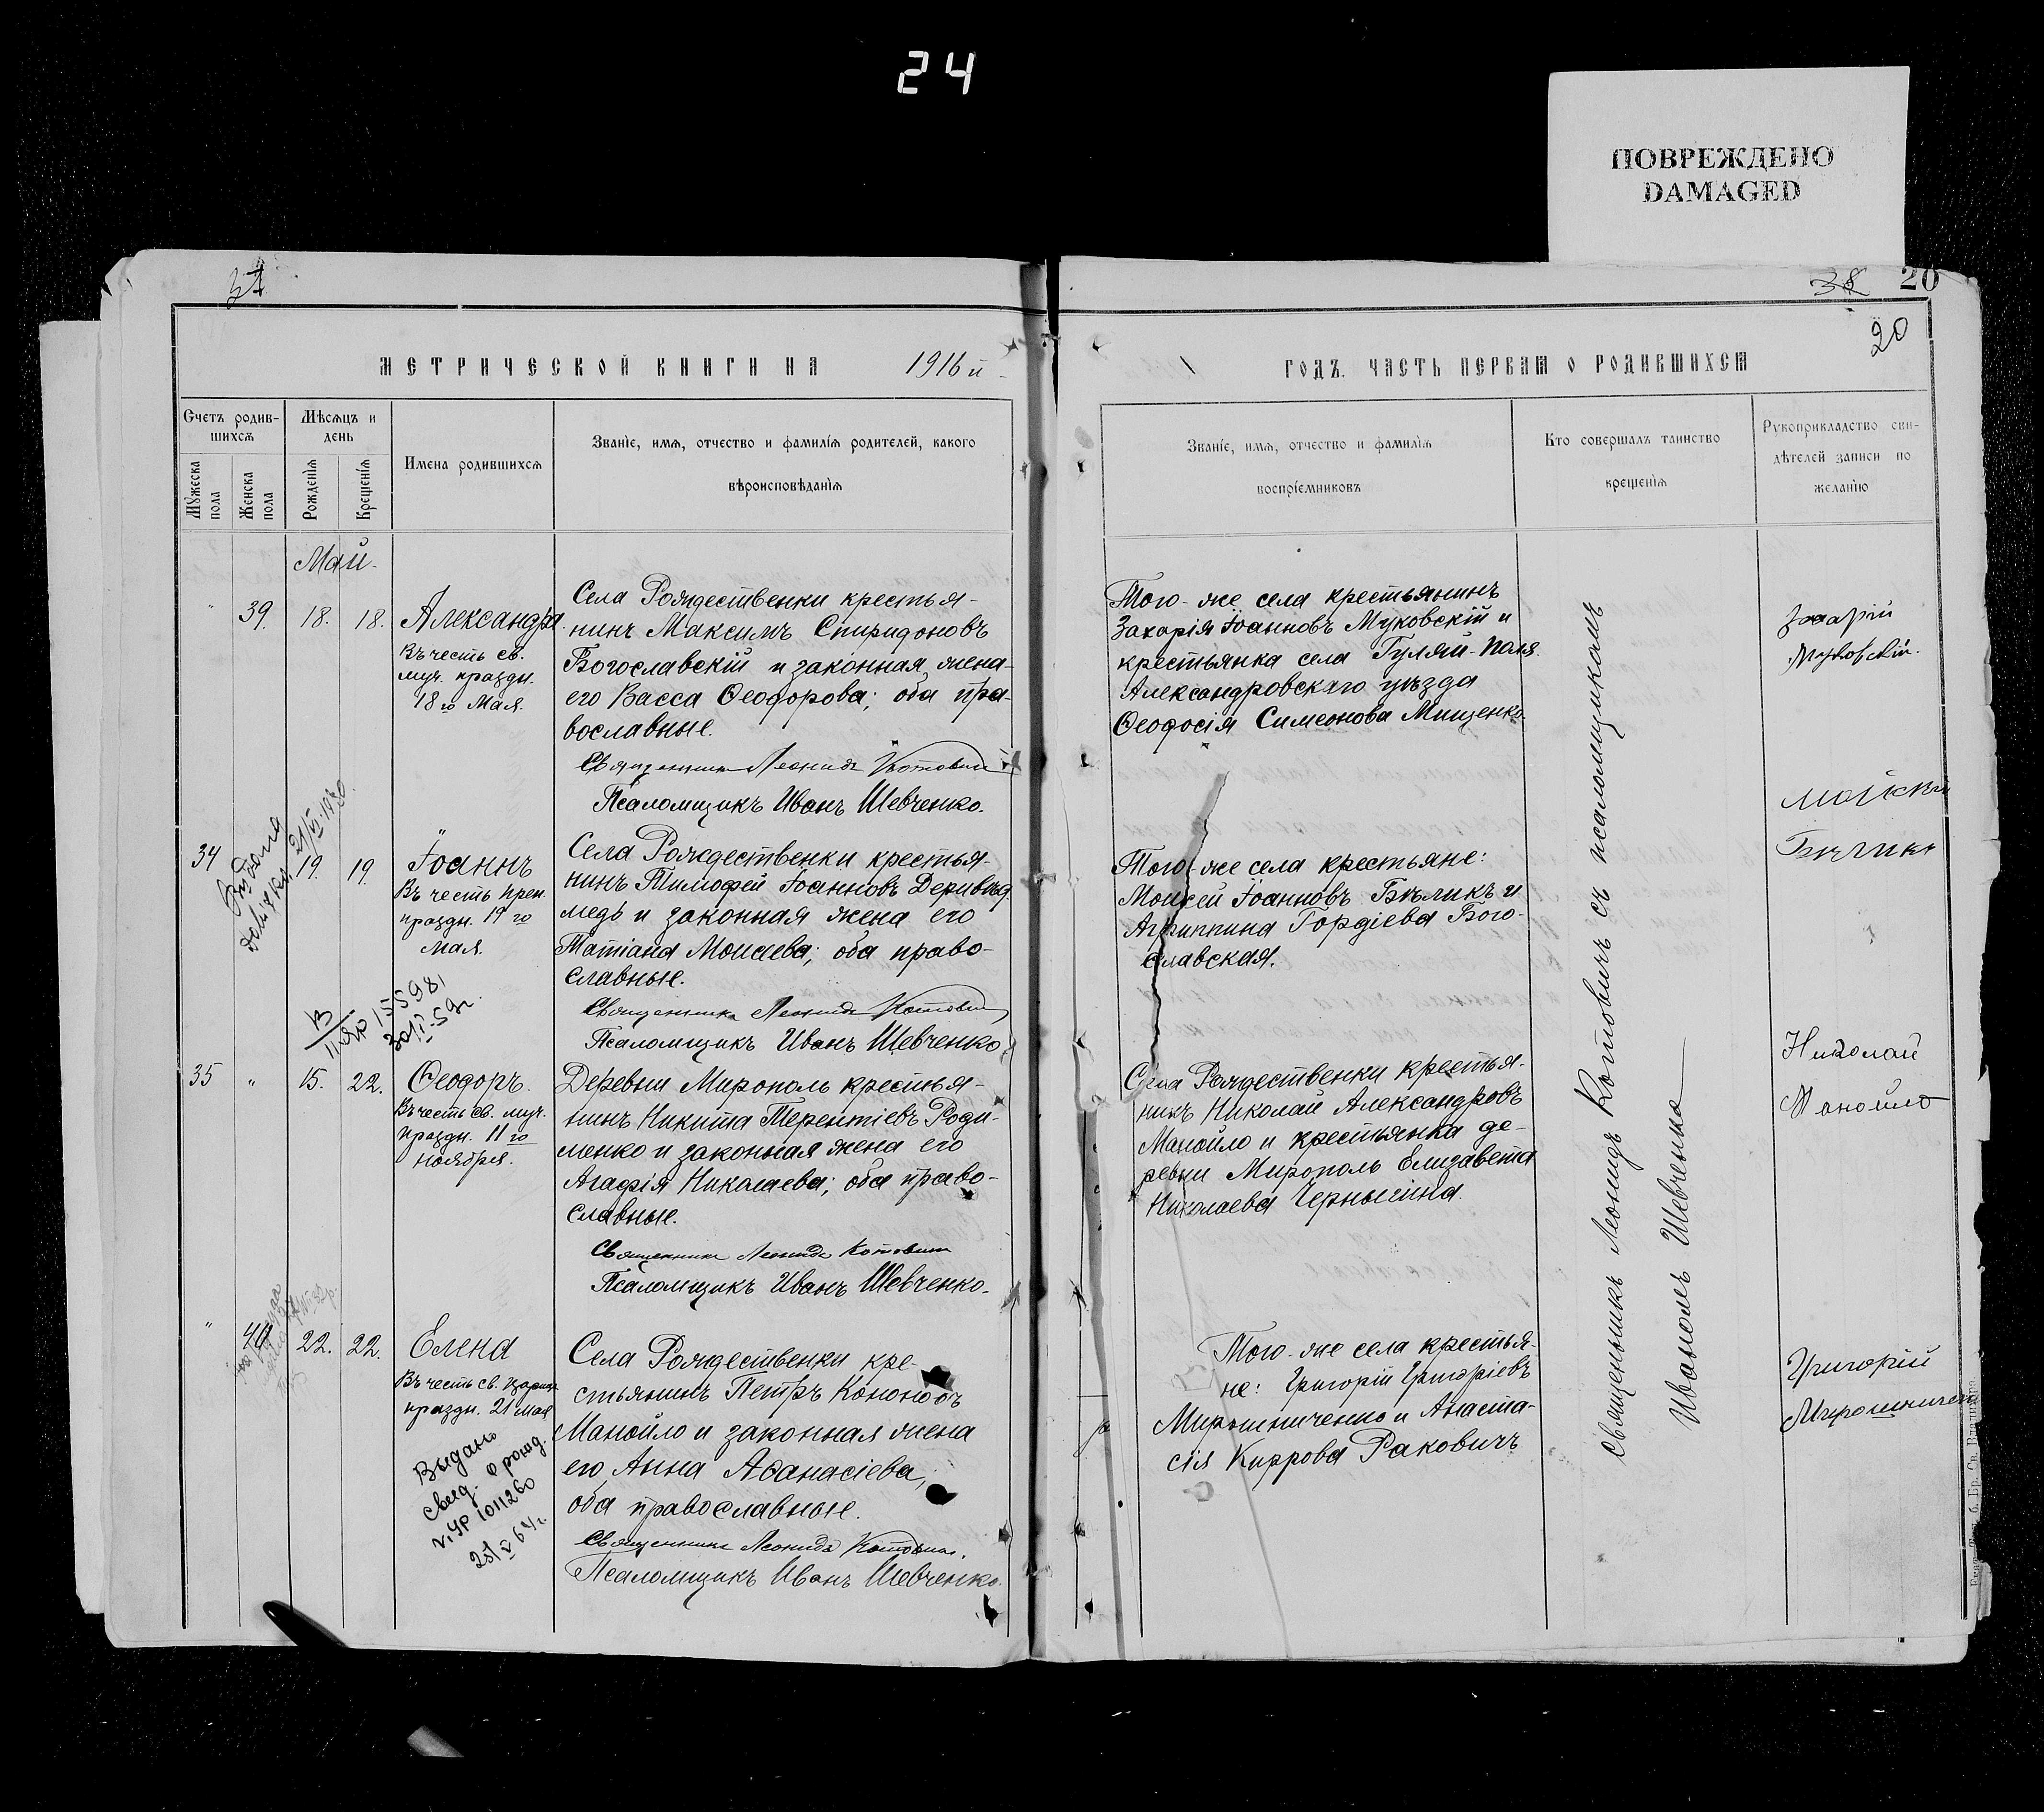 24
ПОВРЕЖДЕНО
DAMAGED
20
20
МЕТРИЧЕСКОЙ КНИГИ НА 1916 й
ГОДЪ. ЧАСТЬ ПЕРВАЯ О РОДИВШИХСЯ
Счетъ родив-
шихся
Мужеска пола
Женска пола
Мѣсяцъ и
день
Рожденія
Крещенія
Имена родившихся
Званіе, имя, отчество и фамилія родителей, какого
вѣроисповѣданія
Званіе, имя, отчество и фамилія
воспріемниковъ
Кто совершалъ таинство
крещенія
Рукоприкладство сви-
дѣтелей записи по
желанію
Май.
" 39. 18. 18.
Александра.
Въ честь св.
муч. праздн.
18го Мая.
Села Рождественки крестья-
нинъ Максимъ Спиридоновъ
Богославскій и законная жена
его Васса Ѳеодорова; оба пра-
вославные.
Священникъ Леонидъ Котовичъ
Псаломщикъ Иванъ Шевченко.
Того-же села крестьянинъ
Захарія Іоанновъ Муковскій и
крестьянка села Гуляй-Поля
Александровскаго уѣзда
Ѳеодосія Симеонова Мищенко.
Захарій
Муковскій.
34 19. 19.
Іоаннъ
Въ честь преп.
праздн. 19го
Мая.
Села Рождественки крестья-
нинъ Тимофей Іоанновъ Деривед-
медь и законная жена его
Татіана Моисеева; оба право-
славные.
Священникъ Леонидъ Котовичъ
Псаломщикъ Иванъ Шевченко
Того-же села крестьяне:
Моисей Іоанновъ Бѣликъ и
Агриппина Гордіева Бого-
славская.
Мойсей
155981
35 " 15. 22.
Ѳеодоръ.
Въ честь св. муч.
праздн. 11го
ноября.
Деревни Мирополь крестья-
нинъ Никита Терентіевъ Роди-
менко и законная жена его
Агафія Николаева; оба право-
славные.
Священникъ Леонидъ Котовичъ
Псаломщикъ Иванъ Шевченко.
Села Рождественки крестья-
нинъ Николай Александровъ
Манойло и крестьянка де-
ревни Мирополь Елизавета
Николаева Чернышина.
Николай
Манойло
" 40 22. 22.
Елена
Въ честь св. Цариц.
праздн. 21 Мая
Выдано
свид. о рожд.
Села Рождественки кре-
стьянинъ Петръ Кононовъ
Манойло и законная жена
его Анна Аѳанасіева;
оба православные.
Священникъ Леонидъ Котовичъ.
Псаломщикъ Иванъ Шевченко.
Того-же села крестья-
не: Григорій Григоріевъ
Мирошниченко и Анаста-
сія Киррова Раковичъ
Григорій
Мирошниченко
Священникъ Леонидъ Котовичъ съ псаломщикомъ
Иваномъ Шевченко